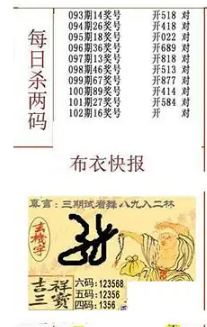 每日杀两码
093期14奖号 开518 对
094期26奖号 开418 对
095期18奖号 开022 对
096期36奖号 开689 对
097期13奖号 开818 对
098期46奖号 开513 对
099期67奖号 开877 对
100期89奖号 开414 对
101期27奖号 开584 对
102期16奖号 开 对
布衣快报
真言：三期试看舞八九入二林
玄机字
吉祥三宝
六码:123568
五码:12356
四码:1356